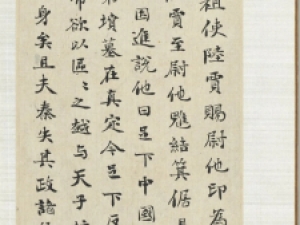 祖使陸賈賜尉他印為
賈至尉他魋結箕倨見
因進說他曰足下中國
弟墳墓在真定今足下反
帶欲以區〻之越与天子抗
身矣且夫秦失其政諸